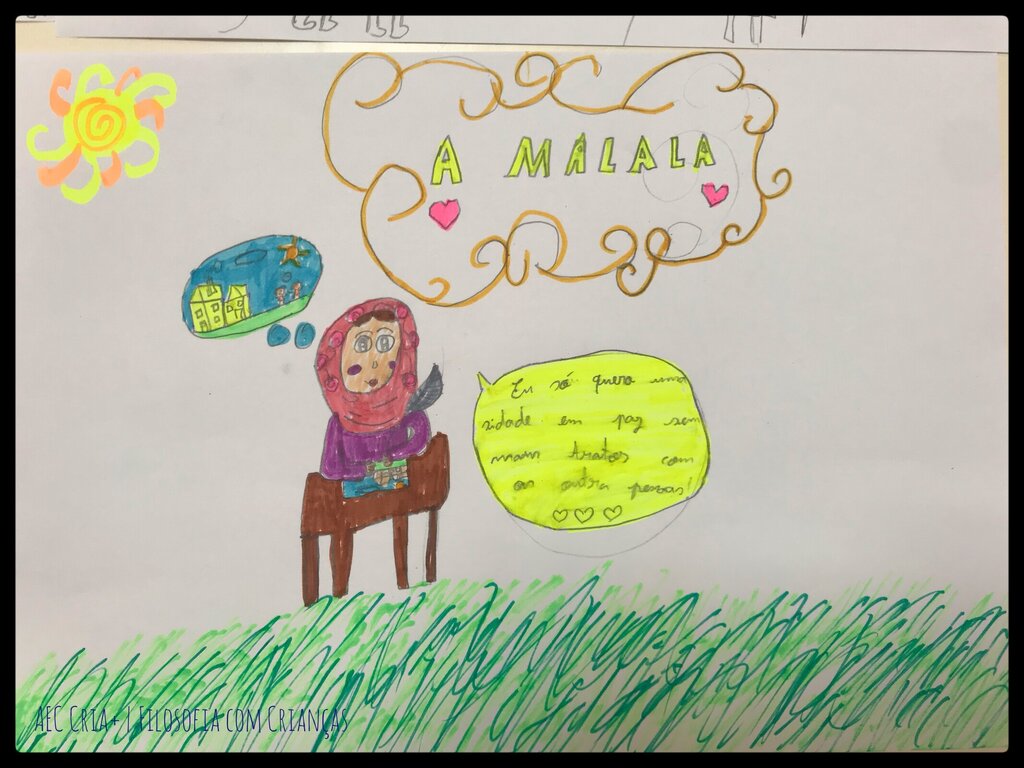 A MALALA
Eu só quero uma
sidade em paz sem
maus tratos com
as outra pessoas!
AEC Cria+ | Filosofia com Crianças